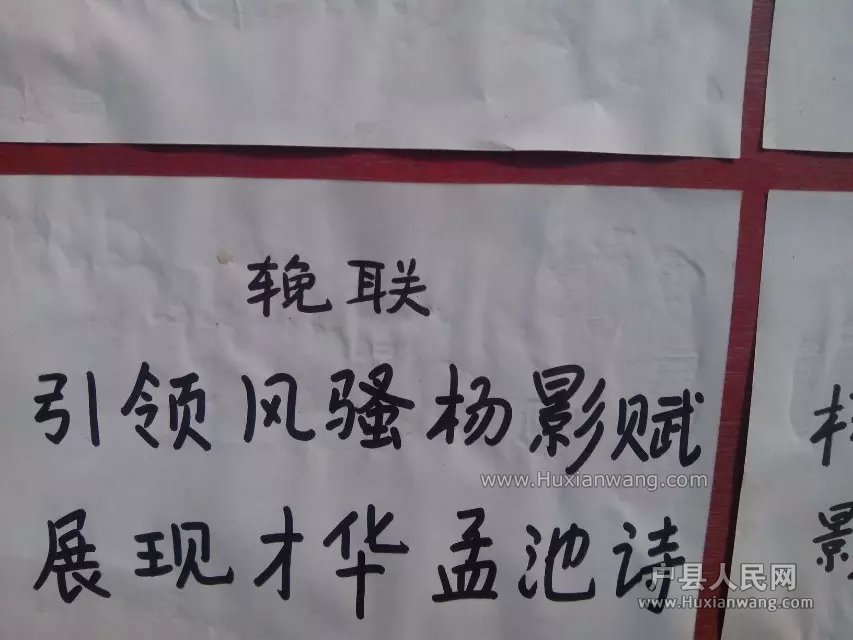 輓联
引领风骚杨影赋
www.Huxianwang.com
展现才华孟池诗
户县人民网
www.Huxianwang.com
影